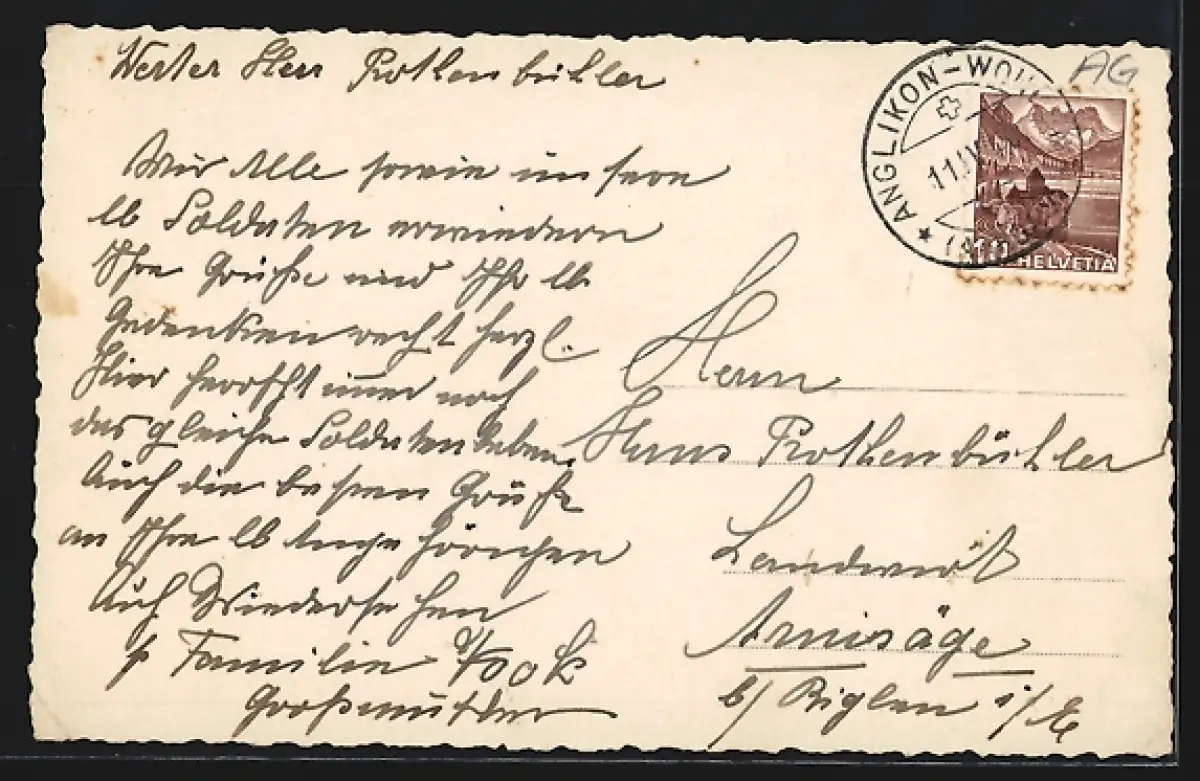 Werter Herr Rothenbühler
Wir Alle sowie unsere
lb Soldaten erwiedern
Ihre Grüße und Ihr lb
Gedenken recht herzl.
Hier herrscht immer noch
das gleiche Soldatenleben.
Auch die besten Grüße
an Ihre lb Angehörigen
Auf Wiedersehen
Familie
Großmutter
AG
ANGLIKON-WOH
11.IV
HELVETIA
Herrn
Hans Rothenbühler
Landwirt
Arnisäge
b/ Biglen i/E